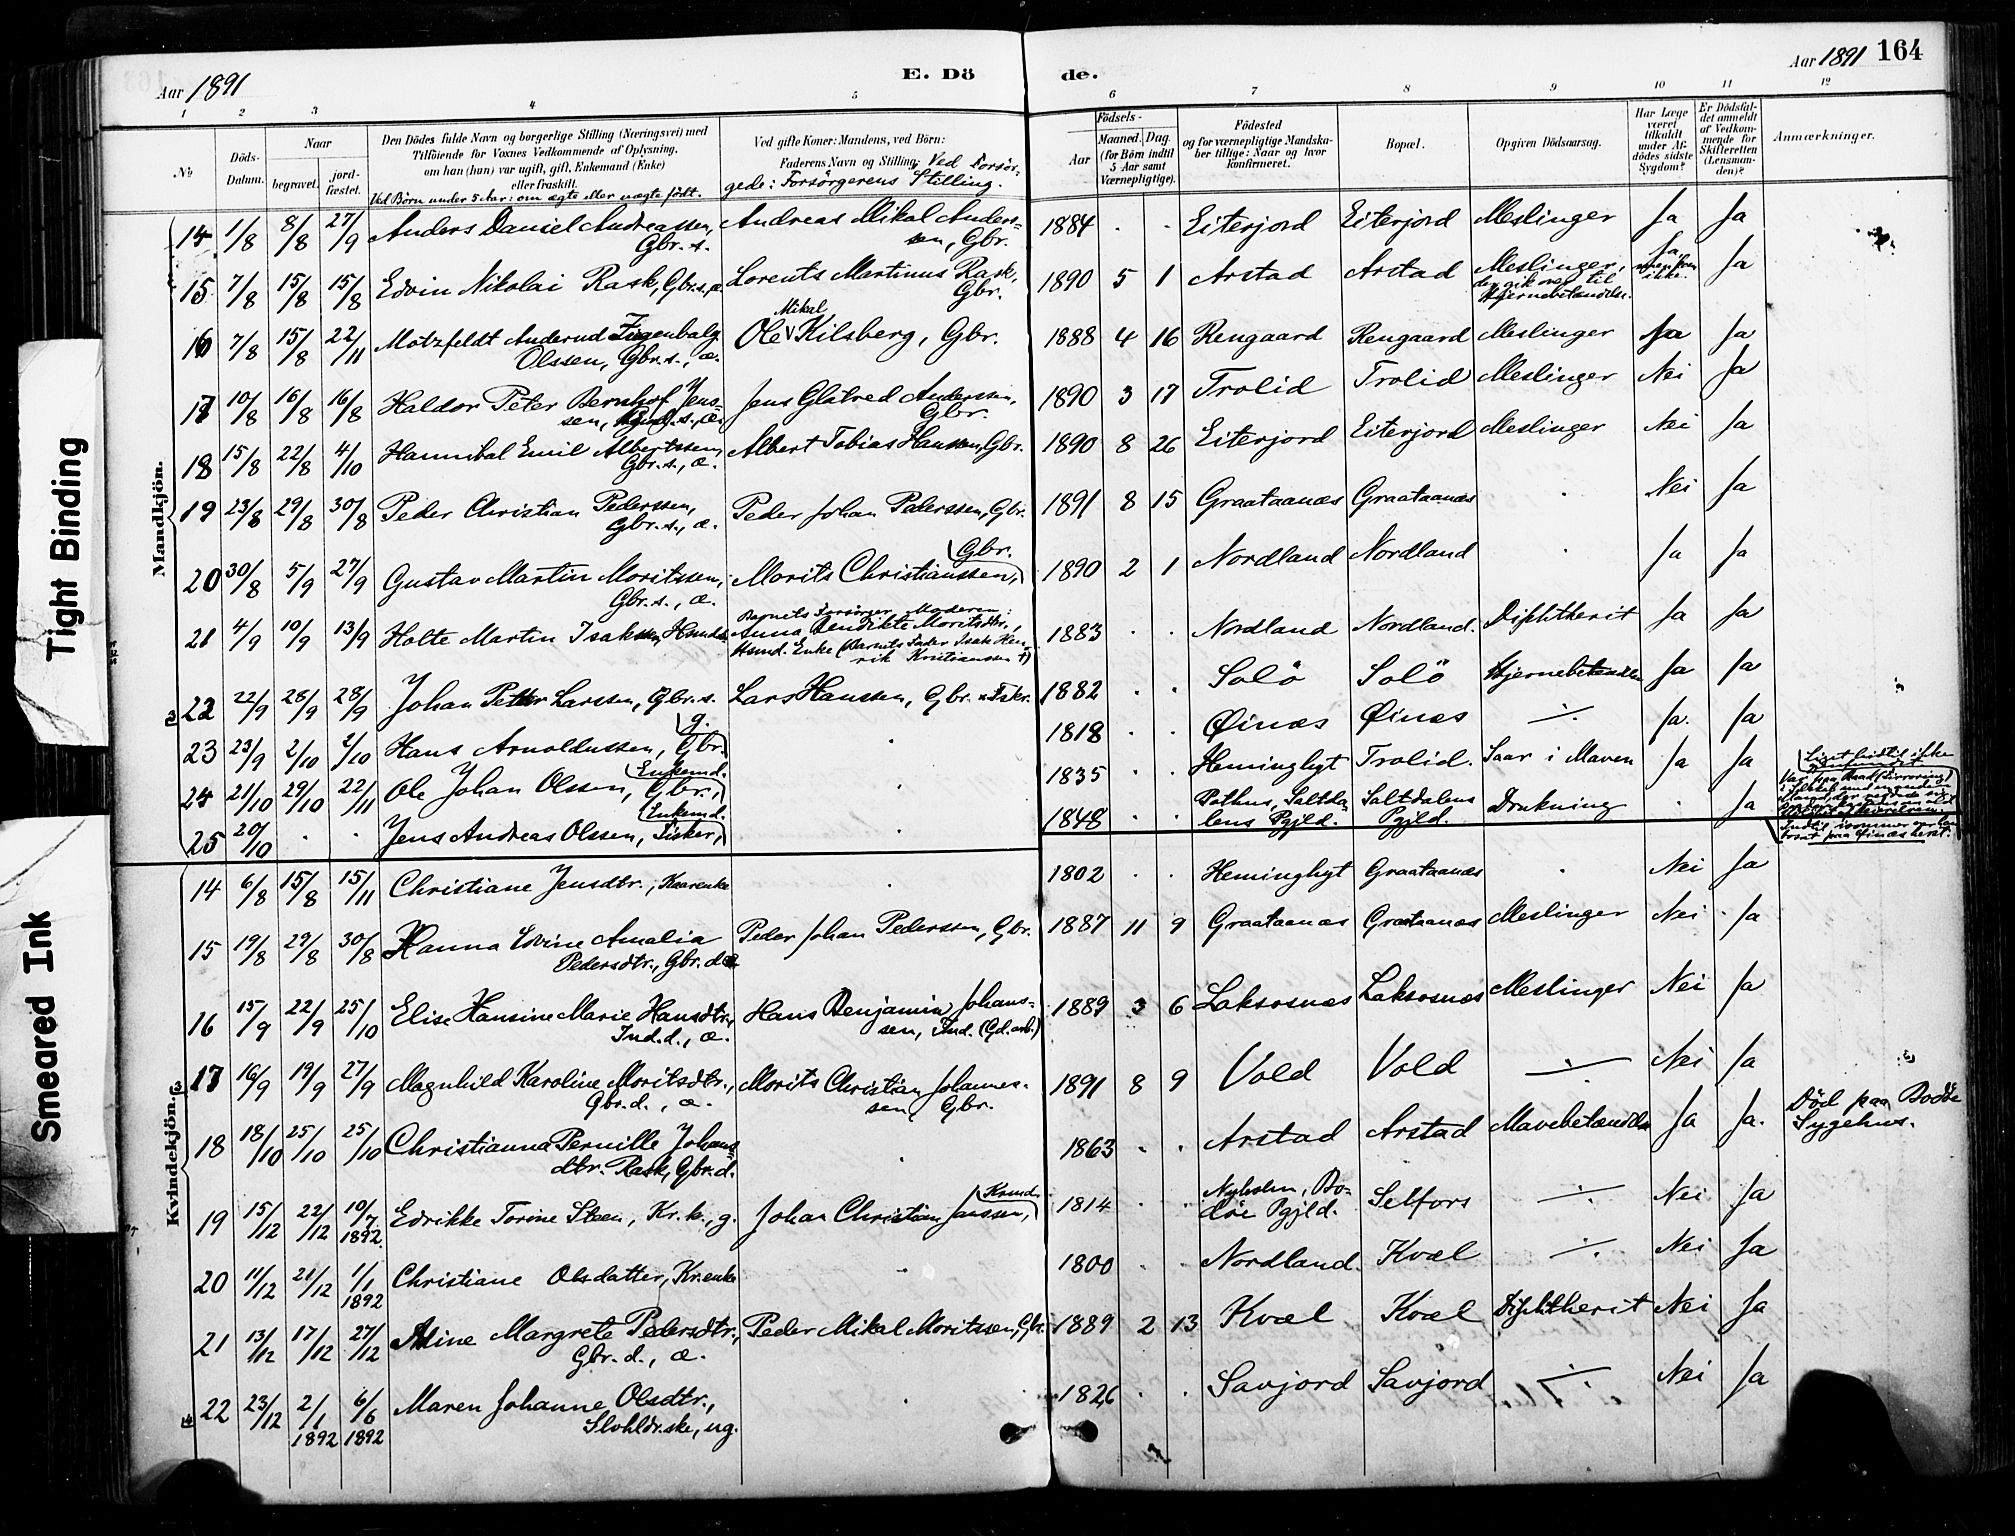 Aar 1891
E. Dö
de.
Aar 1891 164
1 2 3 4 5 6 7 8 9 10 11 12
No
Döds-
Datum.
Naar
begravet.
jord-
fæstet.
Den Dödes fulde Navn og borgerlige Stilling (Næringsvei) med
Tilföiende for Voxnes Vedkommende af Oplysning,
om han (hun) var ugift, gift, Enkemand (Enke)
eller fraskilt.
Ved Börn under 5 Aar: om ægte eller uægte födt.
Ved gifte Koner: Mandens, ved Börn:
Faderens Navn og Stilling. Ved Forsör-
gede: Forsörgerens Stilling.
Födsels-
Aar
Maaned. Dag.
(for Börn indtil
5 Aar samt
Værnepligtige).
Födested
og for værnepligtige Mandska-
ber tillige: Naar og hvor
konfirmeret.
Bopæl.
Opgiven Dödsaarsag.
Har Læge
været
tilkaldt
under Af-
dödes sidste
Sygdom?
Er Dödsfal-
det anmeldt
af Vedkom-
mende for
Skifteretten
(Lensman-
den)?
Anmærkninger.
Mandkjön.
14 1/8 8/8 27/9 Anders Daniel Andreassen, Andreas Mikal Anders- 1884 Eiterjord Eiterjord Meslinger Ja Ja
Gbr. s. sen, Gbr.
15 7/8 15/8 15/8 Edvin Nikolai Rask, Gbr. s., æ. Lorents Martinus Rask, 1890 5 1 Arstad Arstad Meslinger, Ja Ja
Gbr. der gik over til ikke.
Hjernebetændelse.
Mikal
16 7/8 15/8 22/11 Motzfeldt Anderud Ziegenbalg Ole Kilsberg, Gbr. 1888 4 16 Rengaard Rengaard Meslinger Ja Ja
Olssen, Gbr. s., æ.
17 10/8 16/8 16/8 Haldor Peter Bernhof Jens- Jens Glatved Anderssen, 1890 3 17 Trolid Trolid Meslinger Nei Ja
sen, s., æ. Gbr.
18 15/8 22/8 4/10 Hannibal Emil Albertssen, Albert Tobias Hanssen, Gbr. 1890 8 26 Eiterjord Eiterjord Meslinger Nei Ja
Gbr. s., æ.
19 23/8 29/8 30/8 Peder Christian Pederssen, Peder Johan Pederssen, Gbr. 1891 8 15 Graataanæs Graataanæs Nei Ja
Gbr. s., æ.
Gbr.
20 30/8 5/9 27/9 Gustav Martin Moritssen, Morits Christianssen, 1890 2 1 Nordland Nordland Ja Ja
Gbr. s., æ.
Barnets Forsörger Moderen:
21 4/9 10/9 13/9 Holte Martin Isakssen, Husmds. Anna Bendikte Moritsdtr., 1883 Nordland Nordland. Diphtherit Ja Ja
Husmd. Enke (Barnets Fader Isak Hen-
rik Kristianssen †)
22 22/9 28/9 28/9 Johan Petter Larssen, Gbr. s. Lars Hanssen, Gbr. & Fskr. 1882 Solö Solö Hjernebetændelse Ja Ja
g.
23 23/9 2/10 2/10 Hans Arnoldussen, Gbr. 1818 Øinæs Øinæs ./. Ja. Ja
Enkemd.
24 21/10 29/10 22/11 Ole Johan Olssen, Gbr., 1835 Heminghyt Trolid. Saar i Maven Ja Ja
Enkemd.
25 20/10 Jens Andreas Olssen, Fisker, 1848 Pothus, Saltda- Saltdalens Drukning Ja
lens Pgjld. Pgjld.
Liget hidtil ikke
Kvindekjön.
14 6/8 15/8 15/11 Christiane Jensdtr., Kaarenke 1802 Heminghyt Graataanæs Nei Ja
15 19/8 29/8 30/8 Hanna Edvine Amalia Peder Johan Pederssen, Gbr. 1887 11 9 Graataanæs Graataanæs Meslinger Nei Ja
Pedersdtr., Gbr. d. æ.
16 15/9 22/9 25/10 Elise Hansine Marie Hansdtr., Hans Benjamin Johans- 1889 3 6 Laksosnæs Laksosnæs Meslinger Nei Ja
Ind. d., æ. sen, Ind. (Gd. arb.)
17 16/9 19/9 27/9 Magnhild Karoline Moritsdtr., Morits Christian Johannes- 1891 8 9 Vold Vold ./. Nei Ja
Gbr. d., æ. sen, Gbr.
18 18/10 25/10 25/10 Christianna Pernille Johans- 1863 Arstad Arstad Mavebetændelse Ja Ja. Död paa Bodö
dtr. Rask, Gbr. d. Sygehus.
Krmd.
19 15/12 22/12 10/7 1892 Edrikke Torine Steen, Kr. k., g. Johan Christian Janssen, 1814 Nyholm, Bo- Selfors ./. Nei Ja
döe Pgjld.
20 11/12 21/12 1/1 1892 Christiane Olsdatter, Kr. enke 1800 Nordland. Kvæl ./. Nei Ja
21 13/12 17/12 27/12 Aline Margrete Pedersdtr., Peder Mikal Moritssen, Gbr. 1889 2 13 Kvæl Kvæl Diphtherit Nei Ja
Gbr. d., æ.
22 23/12 2/1 1892 6/6 1892 Maren Johanne Olsdtr., 1826 Savjord Savjord ./. Nei Ja
ug.
Tight Binding
Smeared Ink